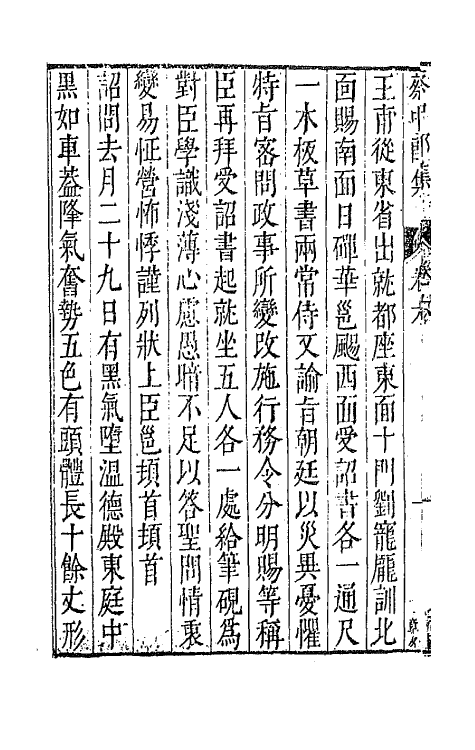 蔡中郎集
王甫從東省出就都座東面十門劉寵龐訓北
面賜南面日磾華邕颺西面受詔書各一通尺
一木板草書兩常侍又諭旨朝廷以災異憂懼
特旨密問政事所變改施行務令分明賜等稱
臣再拜受詔書起就坐五人各一處給筆硯爲
對臣學識淺薄心慮愚暗不足以答聖問情衷
變易怔營怖悸謹列狀上臣邕頓首頓首
詔問去月二十九日有黑氣墮溫德殿東庭中
黑如車蓋隆氣奮勢五色有頭體長十餘丈形